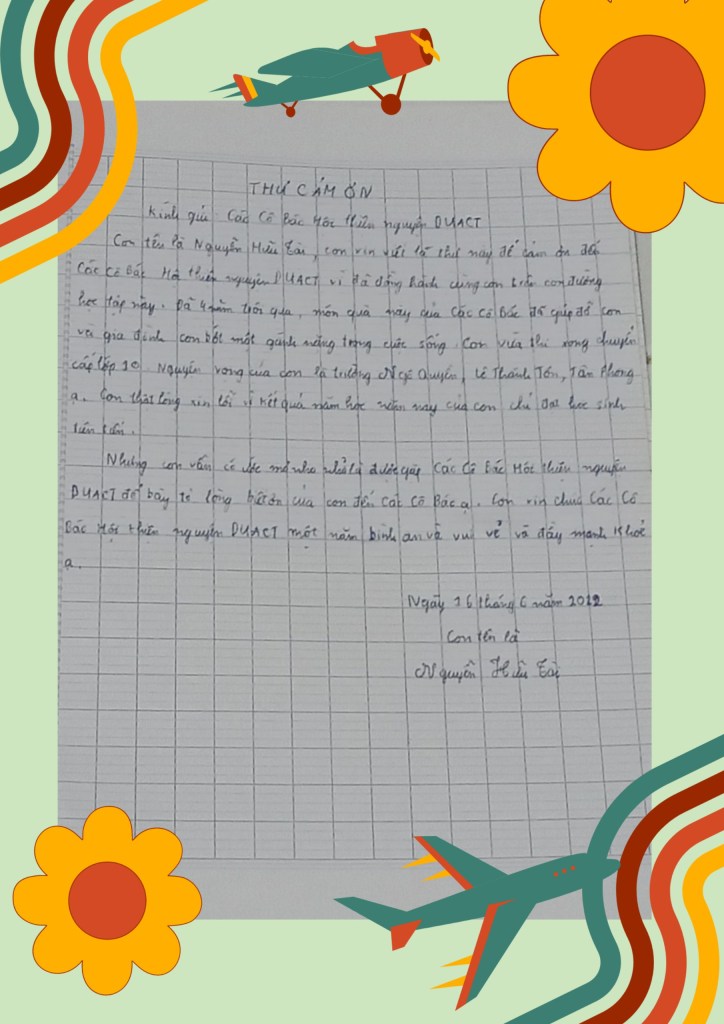 THƯ CẢM ƠN
Kính gửi: Các Cô Bác Hội thiện nguyện DUACT
Con tên là Nguyễn Hữu Tài, con xin viết lá thư này để cảm ơn đến
Các Cô Bác Hội thiện nguyện DUACT vì đã đồng hành cùng con trên con đường
học tập này. Đã 4 năm trôi qua, món quà này của Các Cô Bác đã giúp đỡ con
và gia đình con bớt một gánh nặng trong cuộc sống. Con vừa thi xong chuyển
cấp lớp 10. Nguyện vọng của con là trường Ngô Quyền, Lê Thánh Tôn, Tân Phong
ạ. Con thật lòng xin lỗi vì kết quả năm học năm nay của con chỉ đạt học sinh
tiên tiến.
Nhưng con vẫn có ước mơ nho nhỏ là được gặp Các Cô Bác Hội thiện nguyện
DUACT để bày tỏ lòng biết ơn của con đến Các Cô Bác ạ. Con xin chúc Các Cô
Bác Hội thiện nguyện DUACT một năm bình an và vui vẻ và đầy mạnh khoẻ
ạ.
Ngày 16 tháng 6 năm 2022
Con tên là
Nguyễn Hữu Tài